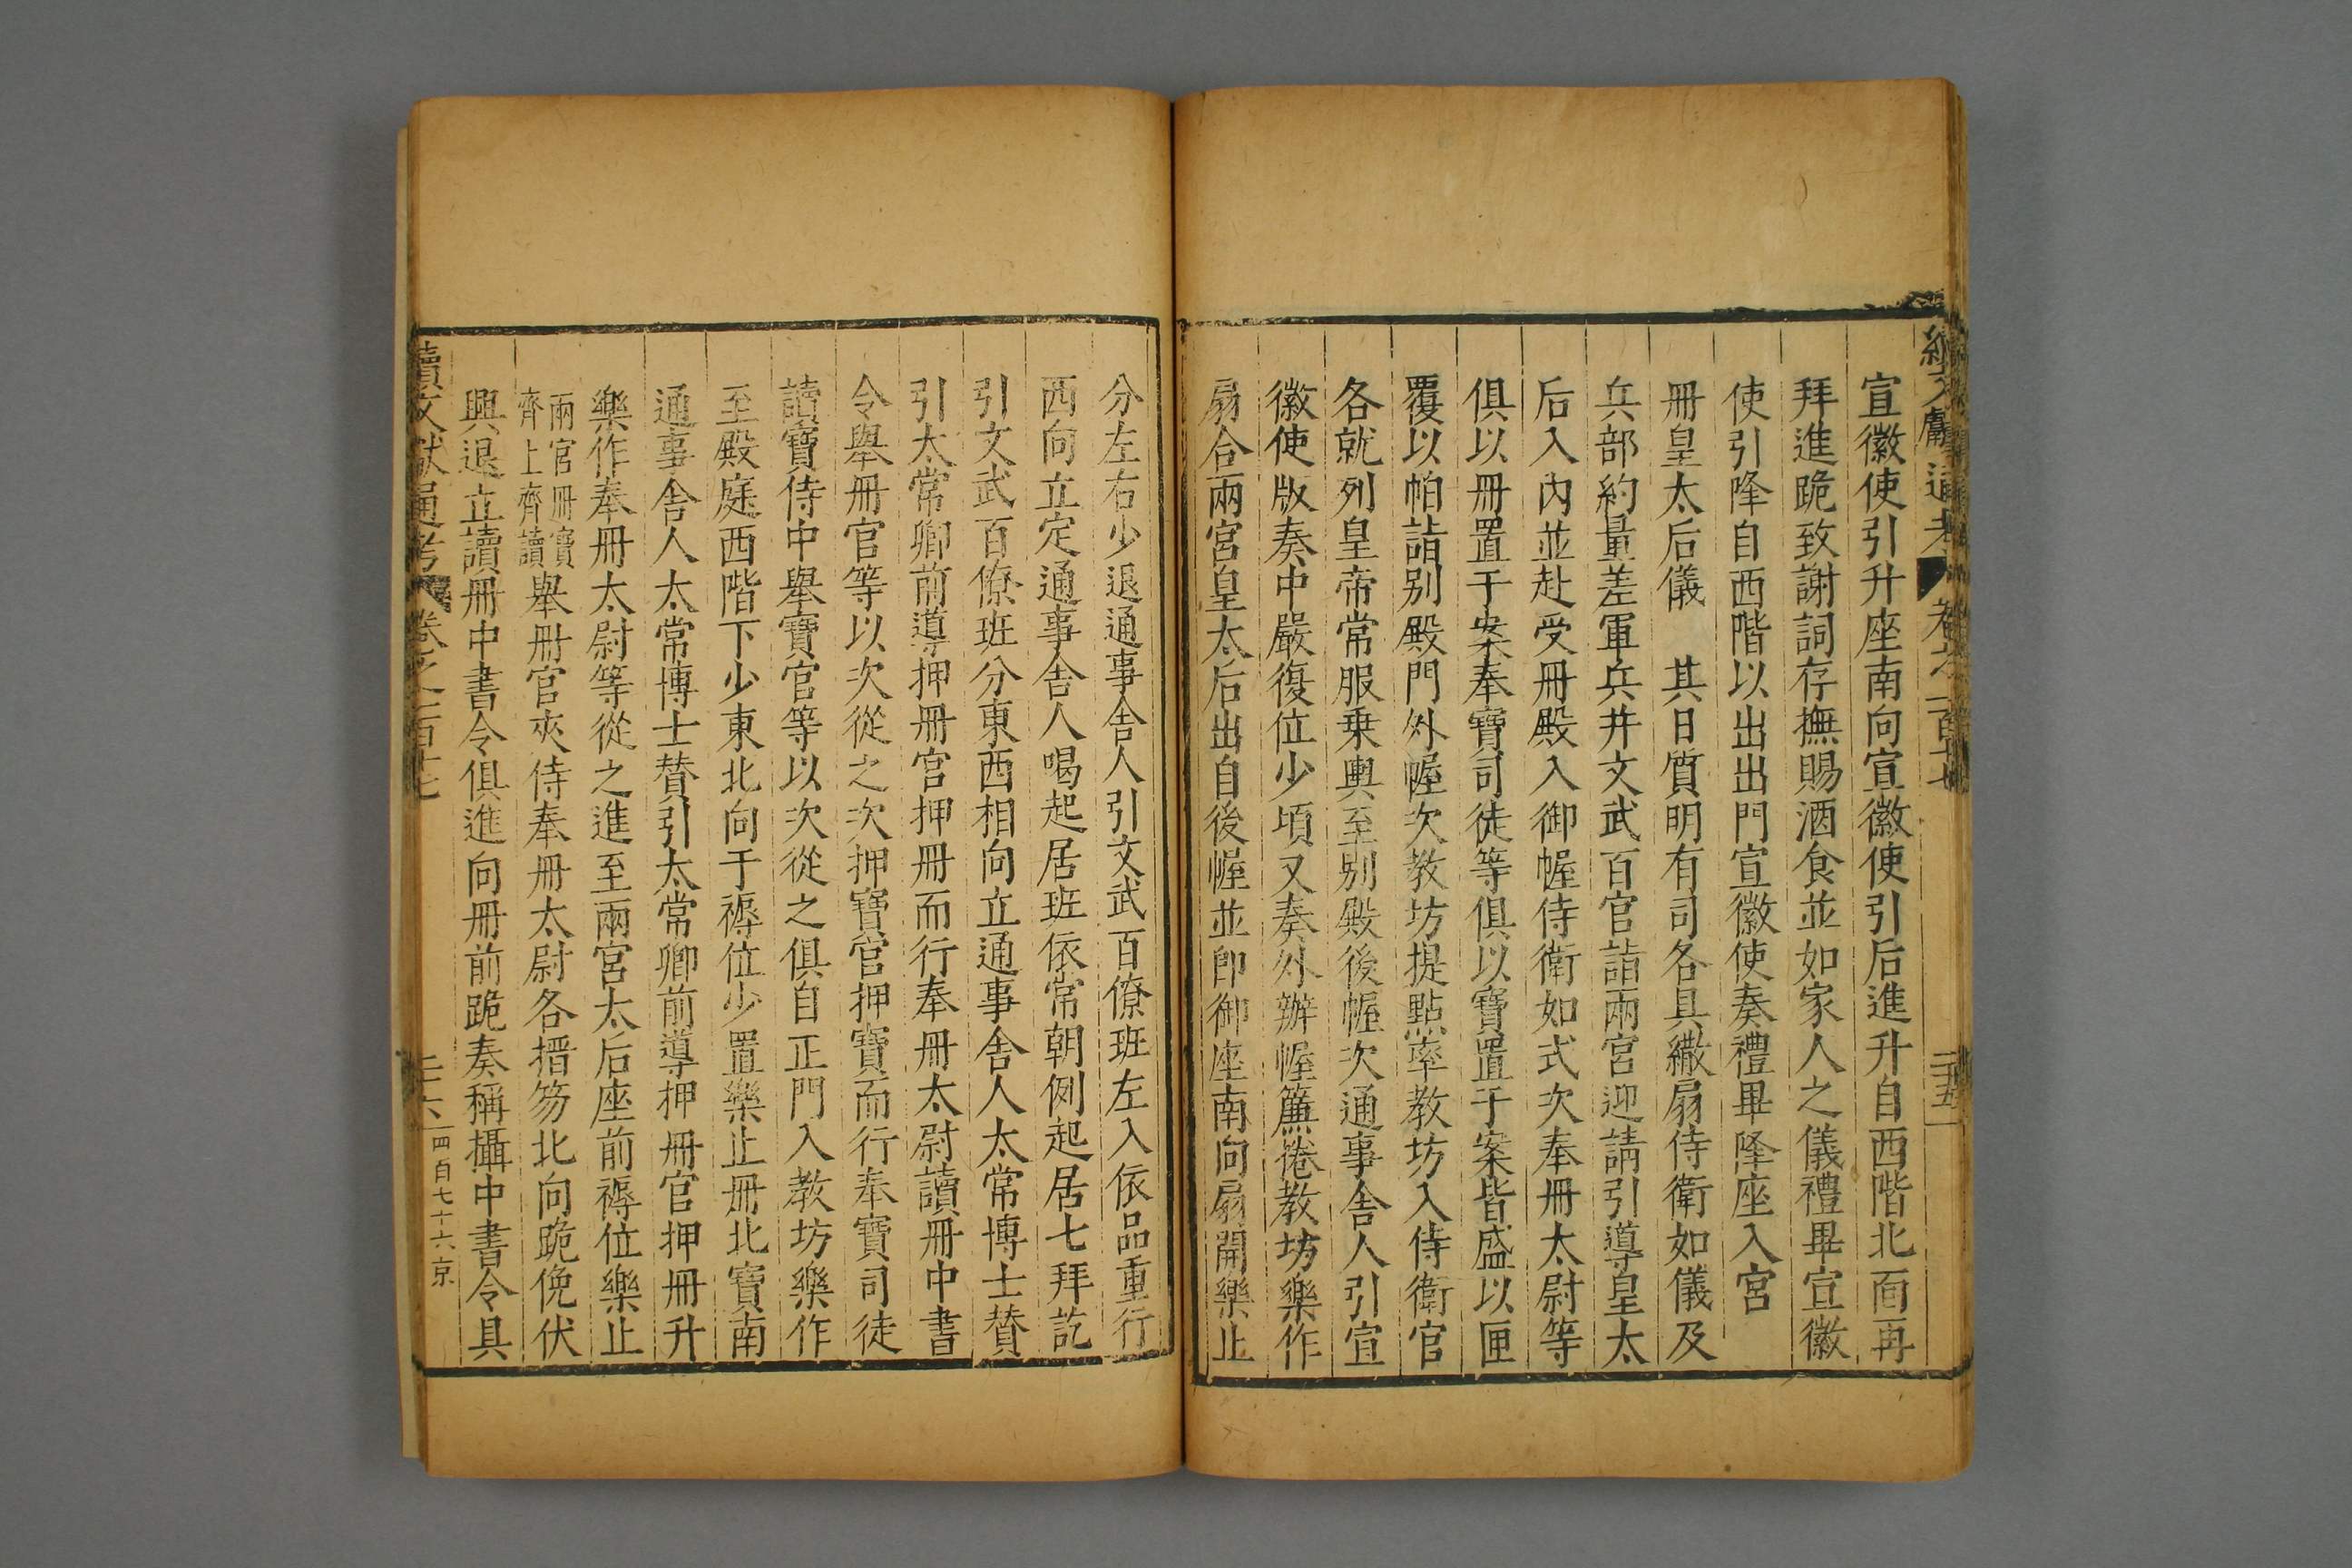 續文獻通考 卷之一百十七 二十五
宣徽使引升座南向宣徽使引后進升自西階北面再
拜進跪致謝詞存撫賜酒食並如家人之儀禮畢宣徽
使引降自西階以出出門宣徽使奏禮畢降座入宮
冊皇太后儀　其日質明有司各具繖扇侍衛如儀及
兵部約量差軍兵并文武百官詣兩宮迎請引導皇太
后入內並赴受冊殿入御幄侍衛如式次奉冊太尉等
俱以冊置于案奉寶司徒等俱以寶置于案皆盛以匣
覆以帕詣別殿門外幄次教坊提點率教坊入侍衛官
各就列皇帝常服乗輿至別殿後幄次通事舍人引宣
徽使版奏中嚴復位少頃又奏外辦幄簾捲教坊樂作
扇合兩宮皇太后出自後幄並即御座南向扇開樂止
分左右少退通事舍人引文武百僚班左入依品重行
西向立定通事舍人喝起居班依常朝例起居七拜訖
引文武百僚班分東西相向立通事舍人太常博士贊
引太常卿前導押冊官押冊而行奉冊太尉讀冊中書
令舉冊官等以次從之次押寶官押寶而行奉寶司徒
讀寶侍中舉寶官等以次從之俱自正門入教坊樂作
至殿庭西階下少東北向于褥位少置樂止冊北寶南
通事舍人太常博士贊引太常卿前導押冊官押冊升
樂作奉冊太尉等從之進至兩宮太后座前褥位樂止
兩宮冊寶齊上齊讀舉冊官夾侍奉冊太尉各搢笏北向跪俛伏
興退立讀冊中書令俱進向冊前跪奏稱攝中書令具
續文獻通考 卷之一百十七 二十六 四百七十六 京